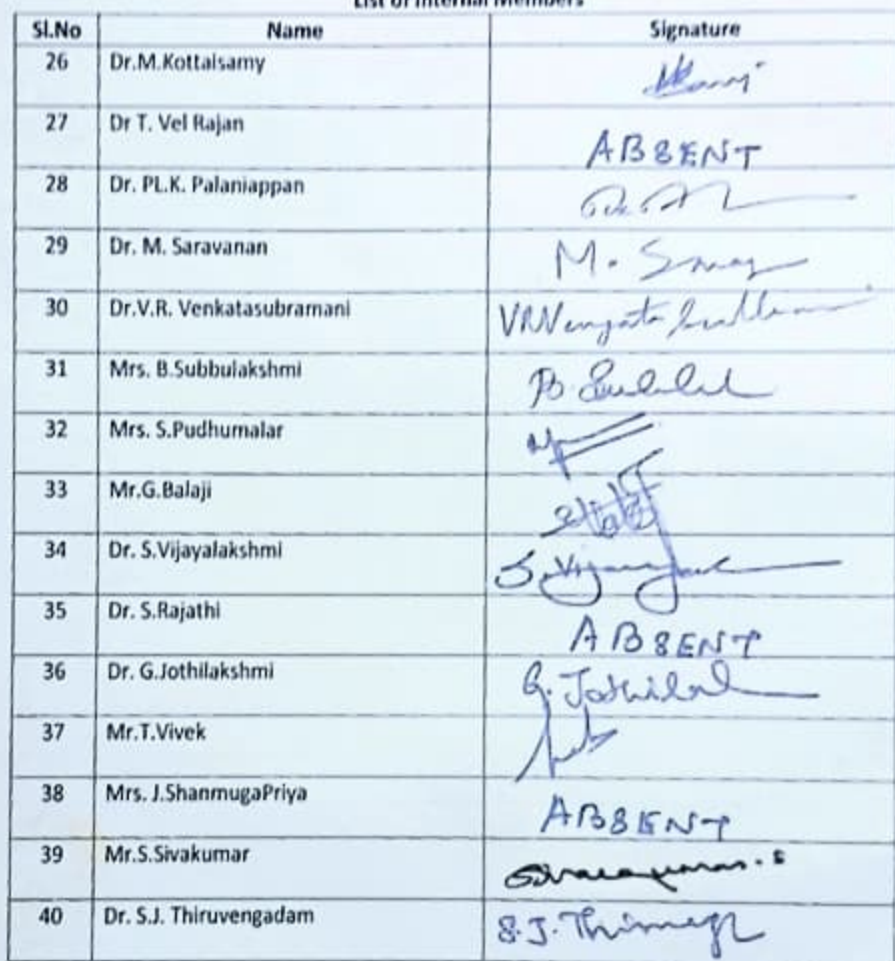 List of Internal Members
Sl.No Name Signature
26 Dr.M.Kottaisamy
27 Dr T. Vel Rajan ABSENT
28 Dr. PL.K. Palaniappan
29 Dr. M. Saravanan M.
30 Dr.V.R. Venkatasubramani
31 Mrs. B.Subbulakshmi B.
32 Mrs. S.Pudhumalar
33 Mr.G.Balaji
34 Dr. S.Vijayalakshmi
35 Dr. S.Rajathi ABSENT
36 Dr. G.Jothilakshmi G.
37 Mr.T.Vivek
38 Mrs. J.ShanmugaPriya ABSENT
39 Mr.S.Sivakumar
40 Dr. S.J. Thiruvengadam S.J.